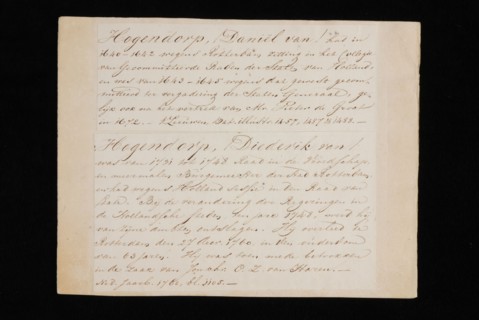 Hogendorp, (Daniël van) had in
1640-1642 wegens Rotterdam zitting in het Collegie
van Gecommitteerde Raden der Staten van Holland
en was van 1643-1645 wegens dat gewest gecom-
mitteerd ter vergadering der Staten Generaal, ge-
lijk ook na het vertrek van Mr. Pieter de Groot
in 1672.
Hogendorp, (Diederik van)
was van 1731 tot 1748 Raad in de Vroedschap
en meermalen Burgemeester der stad Rotterdam
en had wegens Holland sessie in den Raad van
State. Bij de verandering der Regeringen in
de Hollandsche steden, in jare 1748, werd hij
van zijne ambten ontslagen. Hij overleed te
Rotterdam den 27 1760 in den ouderdom
van 63 jaren. Hij was toen mede betrokken
in de zaak van O. Z. van Haren.
Ned. Jaarb. 1760, bl.